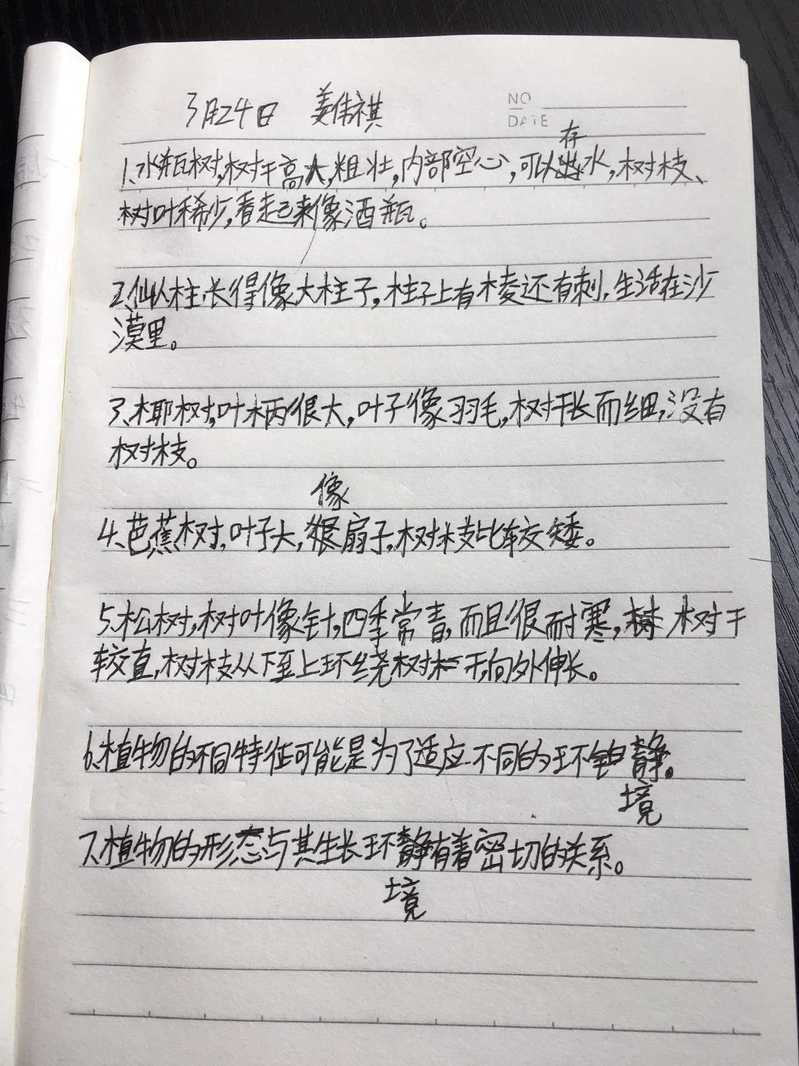 3月24日 姜伟祺
NO
DATE
存
1、水瓶树,树干高大,粗壮,内部空心,可以水,树枝、
树叶稀少,看起来像酒瓶。
2、仙人柱,长得像大柱子,柱子上有棱还有刺,生活在沙
漠里。
3、椰树,叶柄很大,叶子像羽毛,树干长而细,没有
树枝。
像
4、芭蕉树,叶子大,很扇子,树枝比较矮。
5、松树,树叶像针,四季常青,而且很耐寒,树 树干
较直,树枝从下至上环绕树干,向外伸长。
6、植物的不同特征可能是为了适应不同的环静。
境
7、植物的形态与其生长环静有着密切的关系。
境